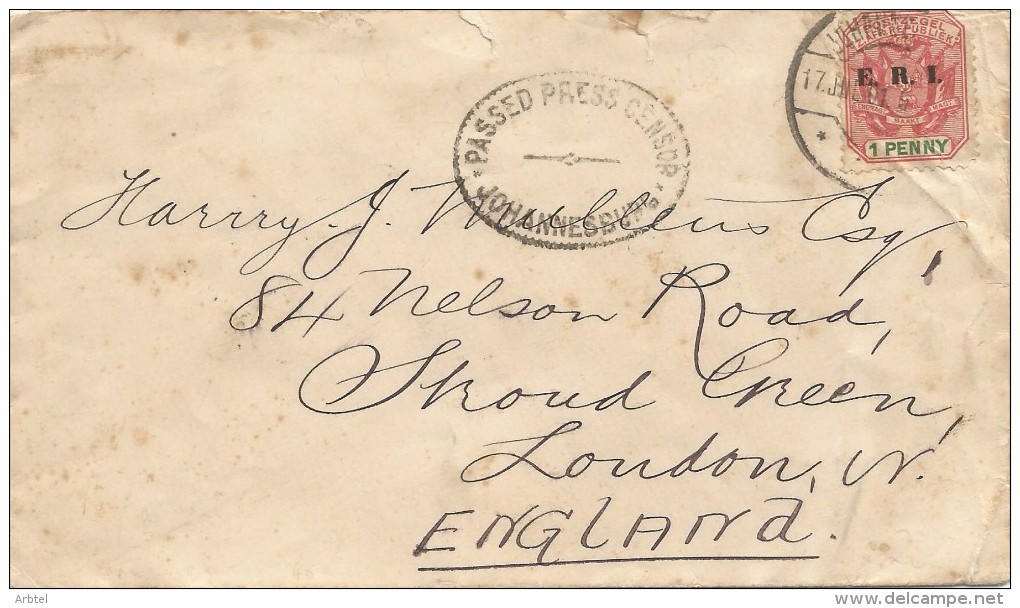 PASSED PRESS CENSOR
JOHANNESBURG
POSTZEGEL
AFR. REPUBLIEK
E. R. I.
EENDRAGT MAAKT MAGT
1 PENNY
Harrry. J. Esqr
84 Nelson Road,
Stroud Green,
London, N.
ENGLANd.
Arbtel
delcampe.net